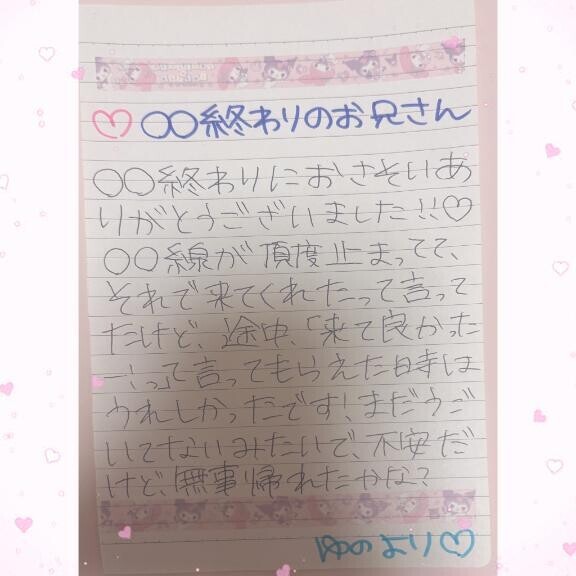 ♡〇〇終わりのお兄さん
〇〇終わりにおさそいあ
りがとうございました!!♡
〇〇線が頂度止まってて、
それで来てくれたって言って
たけど、途中、「来て良かった
ー!っ」て言ってもらえた時は
うれしかったです!まだうご
いてないみたいで、不安だ
けど、無事帰れたかな?
ゆのより♡